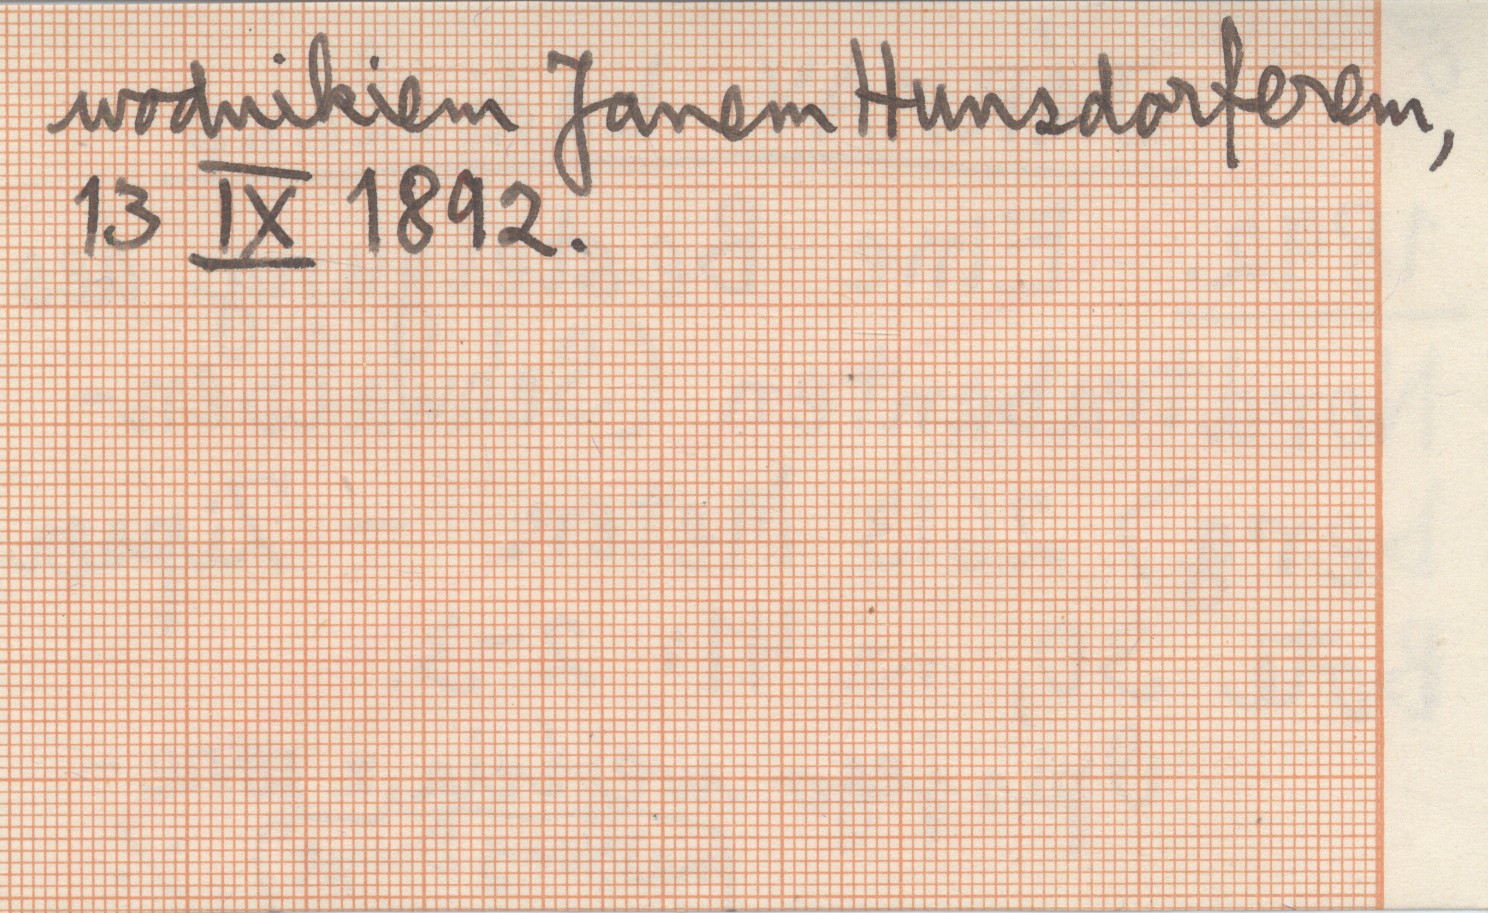 wodnikiem Janem Hunsdorferem,
13 IX 1892.